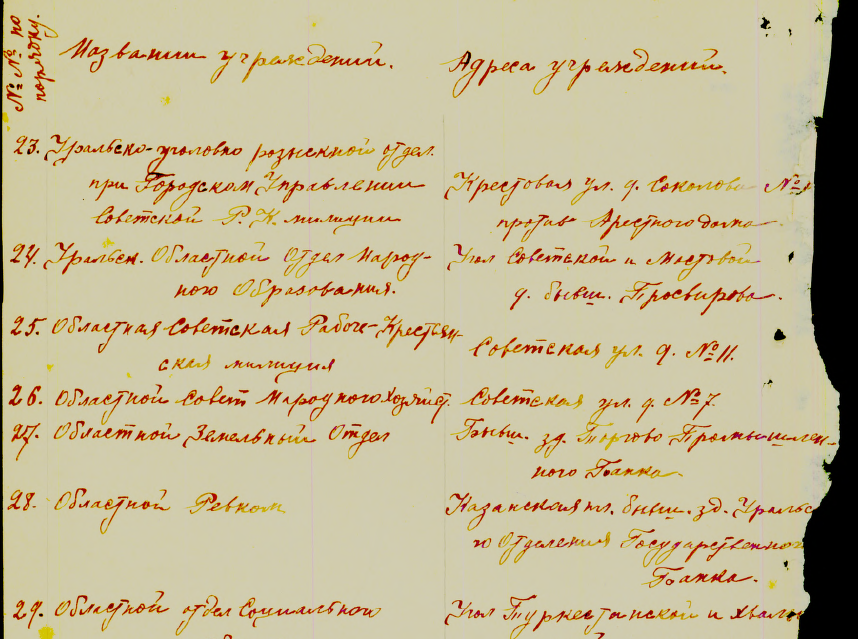 №№ по порядку.
Названии учреждений. Адреса учреждений.
23. Уральско-уголовно розыскной отдел.
при Городском Управлении Крестовая ул. д. Соколова №
Советской Р. К. милиции против Арестного дома.
24. Уральск. Областной Отдел Народ- Угол Советской и Мостовой
ного Образования. д. бывш. Просвирова.
25. Областная Советская Рабоче-Крестьян-
ская милиция Советская ул. д. №11.
26. Областной Совет Народного Хозяйст. Советская ул. д. №7.
27. Областной Земельный Отдел Бывш. зд. Торгово-Промышлен-
ного Банка.
28. Областной Ревком Казанская пл. бывш. зд. Уральс
го Отделения Государственного
Банка.
29. Областной отдел Социального Угол Туркестанской и Хвалы